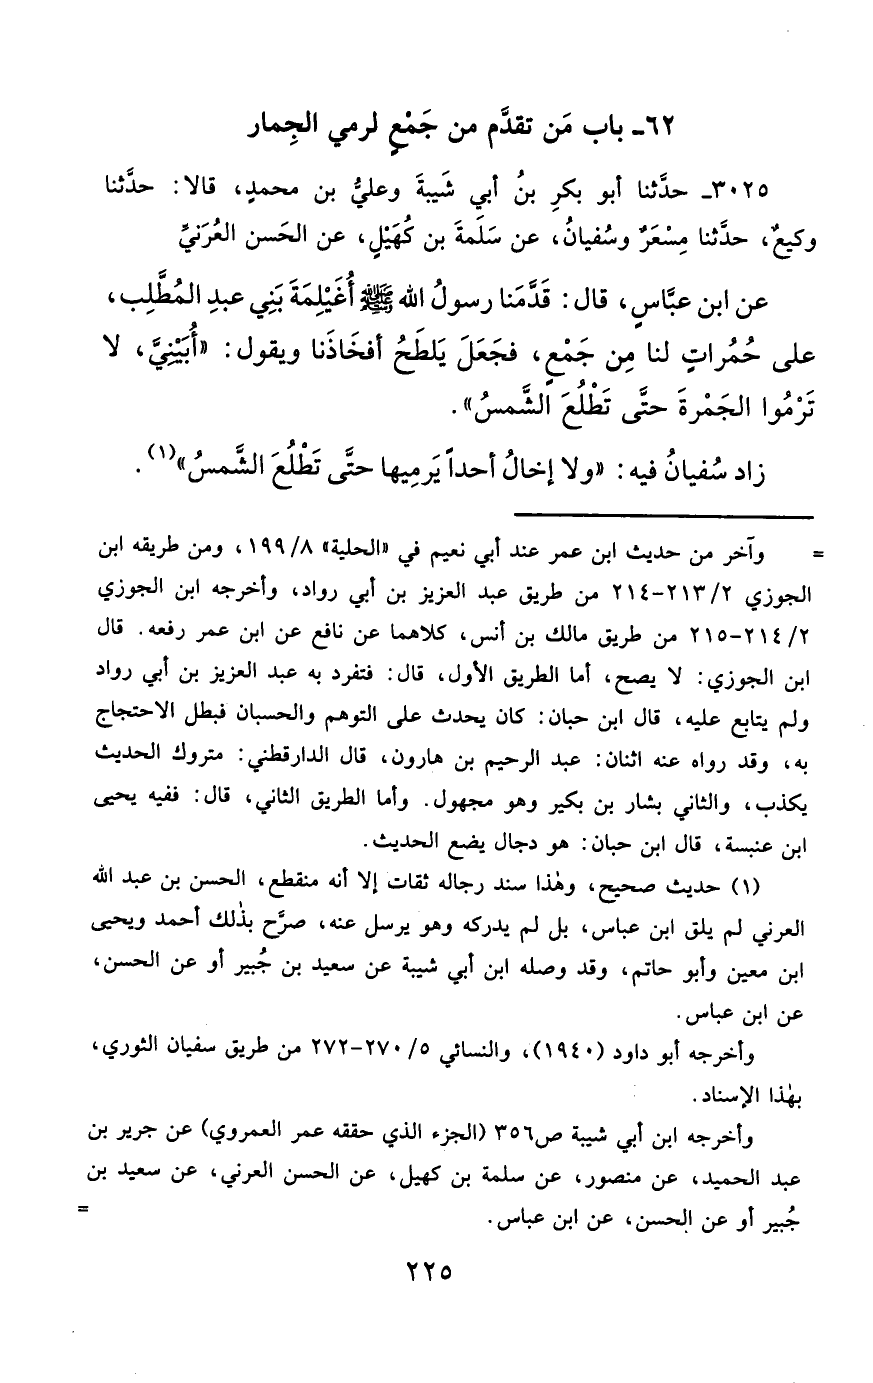 ٦٢ـ باب مَن تقدَّم من جَمْعٍ لرمي الجِمار
٣٠٢٥ـ حدَّثنا أبو بكرِ بنُ أبي شَيبةَ وعليُّ بن محمدٍ، قالا: حدَّثنا
وكيعٌ، حدَّثنا مِسْعَرٌ وسُفيانُ، عن سَلَمةَ بن كُهَيْلٍ، عن الحَسن العُرَنيِّ
عن ابن عبَّاسٍ، قال: قَدَّمَنا رسولُ الله ﷺ أُغَيْلِمَةَ بَنِي عبدِ المُطَّلِب،
على حُمُراتٍ لنا مِن جَمْعٍ، فجَعَلَ يَلطَحُ أفخَاذَنا ويقول: «أُبَيْنِيَّ، لا
تَرْمُوا الجَمْرةَ حتَّى تَطْلُعَ الشَّمسُ».
زاد سُفيانُ فيه: «ولا إخالُ أحداً يَرمِيها حتَّى تَطْلُعَ الشَّمسُ»(١).
= وآخر من حديث ابن عمر عند أبي نعيم في «الحلية» ٨/١٩٩، ومن طريقه ابن
الجوزي ٢/٢١٣-٢١٤ من طريق عبد العزيز بن أبي رواد، وأخرجه ابن الجوزي
٢/٢١٤-٢١٥ من طريق مالك بن أنس، كلاهما عن نافع عن ابن عمر رفعه. قال
ابن الجوزي: لا يصح، أما الطريق الأول، قال: فتفرد به عبد العزيز بن أبي رواد
ولم يتابع عليه، قال ابن حبان: كان يحدث على التوهم والحسبان فبطل الاحتجاج
به، وقد رواه عنه اثنان: عبد الرحيم بن هارون، قال الدارقطني: متروك الحديث
يكذب، والثاني بشار بن بكير وهو مجهول. وأما الطريق الثاني، قال: ففيه يحيى
ابن عنبسة، قال ابن حبان: هو دجال يضع الحديث.
(١) حديث صحيح، وهٰذا سند رجاله ثقات إلا أنه منقطع، الحسن بن عبد الله
العرني لم يلق ابن عباس، بل لم يدركه وهو يرسل عنه، صرَّح بذٰلك أحمد ويحيى
ابن معين وأبو حاتم، وقد وصله ابن أبي شيبة عن سعيد بن جُبير أو عن الحسن،
عن ابن عباس.
وأخرجه أبو داود (١٩٤٠)، والنسائي ٥/٢٧٠-٢٧٢ من طريق سفيان الثوري،
بهٰذا الإسناد.
وأخرجه ابن أبي شيبة ص٣٥٦ (الجزء الذي حققه عمر العمروي) عن جرير بن
عبد الحميد، عن منصور، عن سلمة بن كهيل، عن الحسن العرني، عن سعيد بن
جُبير أو عن الحسن، عن ابن عباس. =
٢٢٥